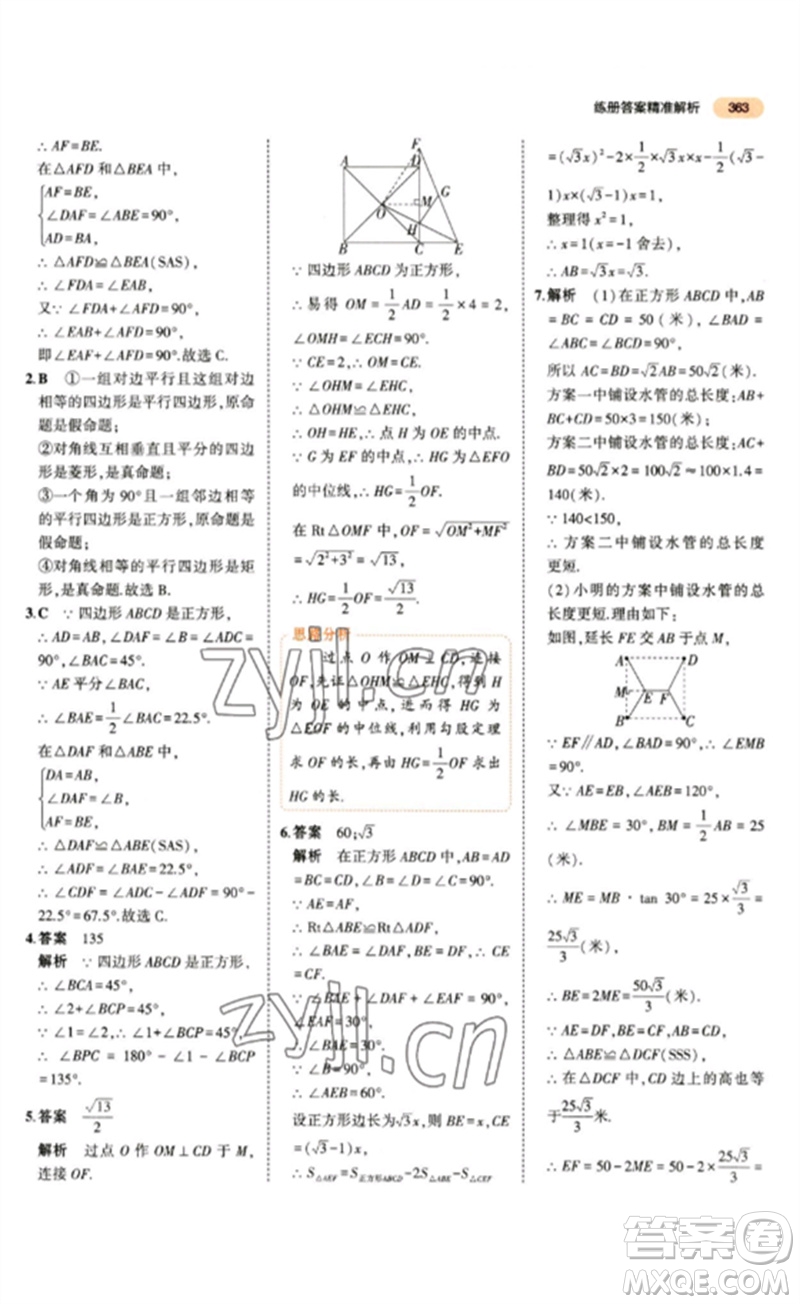 练册答案精准解析 363
∴ AF=BE.
在△AFD 和△BEA 中,
AF=BE,
∠DAF=∠ABE=90°,
AD=BA,
∴ △AFD≌△BEA(SAS),
∴ ∠FDA=∠EAB,
又∵ ∠FDA+∠AFD=90°,
∴ ∠EAB+∠AFD=90°,
即∠EAF=90°.故选 C.
2.B ①一组对边平行且这组对边
相等的四边形是平行四边形,原命
题是假命题;
②对角线互相垂直且平分的四边
形是菱形,是真命题;
③一个角为 90°且一组邻边相等
的平行四边形是正方形,原命题是
假命题;
④对角线相等的平行四边形是矩
形,是真命题.故选 B.
3.C ∵ 四边形 ABCD 是正方形,
∴ AD=AB,∠ADC=∠B=
90°,∠BAC=45°.
∵ AE 平分∠BAC,
∴ ∠BAE=1/2∠BAC=22.5°.
在△DAF 和△ABE 中,
DA=AB,
∠DAF=∠B,
AF=BE,
∴ △DAF≌△ABE(SAS),
∴ ∠ADF=∠BAE=22.5°,
∴ ∠CDF=∠ADC-∠ADF=90°-
22.5°=67.5°.故选 C.
4.答案 135
解析 ∵ 四边形 ABCD 是正方形,
∴ ∠BCA=45°,
∴ ∠2+∠BCP=45°,
∵ ∠1=∠2,∴ ∠1+∠BCP=45°,
∵ ∠BPC=180°-∠1-∠BCP
=135°.
5.答案 √13/2
解析 过点 O 作 OM⊥CD 于 M,
连接 OF.
F
A D
G
O M
H
B C E
∵ 四边形 ABCD 为正方形,
∴ 易得 OM=1/2AD=1/2×4=2,
∠OMH=∠ECH=90°.
∵ CE=2,∴ OM=CE,
∴ ∠OHM=∠EHC,
∴ △OHM≌△EHC,
∴ OH=HE,∴ 点 H 为 OE 的中点.
∵ G 为 EF 的中点,∴ HG 是△EFO
的中位线,∴ HG=1/2OF.
在 Rt△OMF 中,OF=√(OM²+MF²)
=√(2²+3²)=√13,
∴ HG=1/2OF=√13/2.
思路分析
过点 O 作 OM⊥CD,连接
OF,先证△OHM≌△EHC,得到 H
为 OE 的中点,进而得 HG 为
△EOF 的中位线,利用勾股定理
求 OF 的长,再由 HG=1/2OF 求出
HG 的长.
6.答案 60;√3
解析 在正方形 ABCD 中,AB=AD
=BC=CD,∠B=∠D=90°,
∵ AE=AF,
∴ Rt△ABE≌Rt△ADF,
∴ ∠BAE=∠DAF,BE=DF,∴ CE
=CF.
∵ ∠BAE+∠DAF+∠EAF=90°,
∠EAF=30°,
∴ ∠BAE=30°,
∵ ∠B=90°,
∴ ∠AEB=60°.
设正方形边长为√3x,则 BE=x,CE
=(√3-1)x,
∴ S△AEF=S正方形ABCD-2S△ABE-S△CEF
=(√3x)²-2×1/2×√3x·x-1/2(√3-
1)x×(√3-1)x=1,
整理得 x²=1,
∴ x=1(x=-1 舍去),
∴ AB=√3x=√3.
7.解析 (1)在正方形 ABCD 中,AB
=BC=CD=50(米),∠BAD=
∠ABC=∠BCD=90°,
所以 AC=BD=√2AB=50√2(米).
方案一中铺设水管的总长度:AB+
BC+CD=50×3=150(米),
方案二中铺设水管的总长度:AC+
BD=50√2×2=100√2≈100×1.4=
140(米).
∵ 140<150,
∴ 方案二中铺设水管的总长度
更短.
(2)小明的方案中铺设水管的总
长度更短.理由如下:
如图,延长 FE 交 AB 于点 M,
A D
M E F
B C
∵ EF∥AD,∴ ∠BME=∠BAD
=90°.
又∵ AE=EB,∠AEB=120°,
∴ ∠MBE=30°,BM=1/2AB=25
(米),
∴ ME=MB·tan 30°=25×√3/3=
25√3/3(米),
∴ BE=2ME=50√3/3(米).
∵ AE=DF,BE=CF,AB=CD,
∴ △ABE≌△DCF(SSS),
∴ 在△DCF 中,CD 边上的高也等
于25√3/3米.
∴ EF=50-2ME=50-2×25√3/3=
zyjl.cn
zyjl.cn
答案卷
MXQE.COM